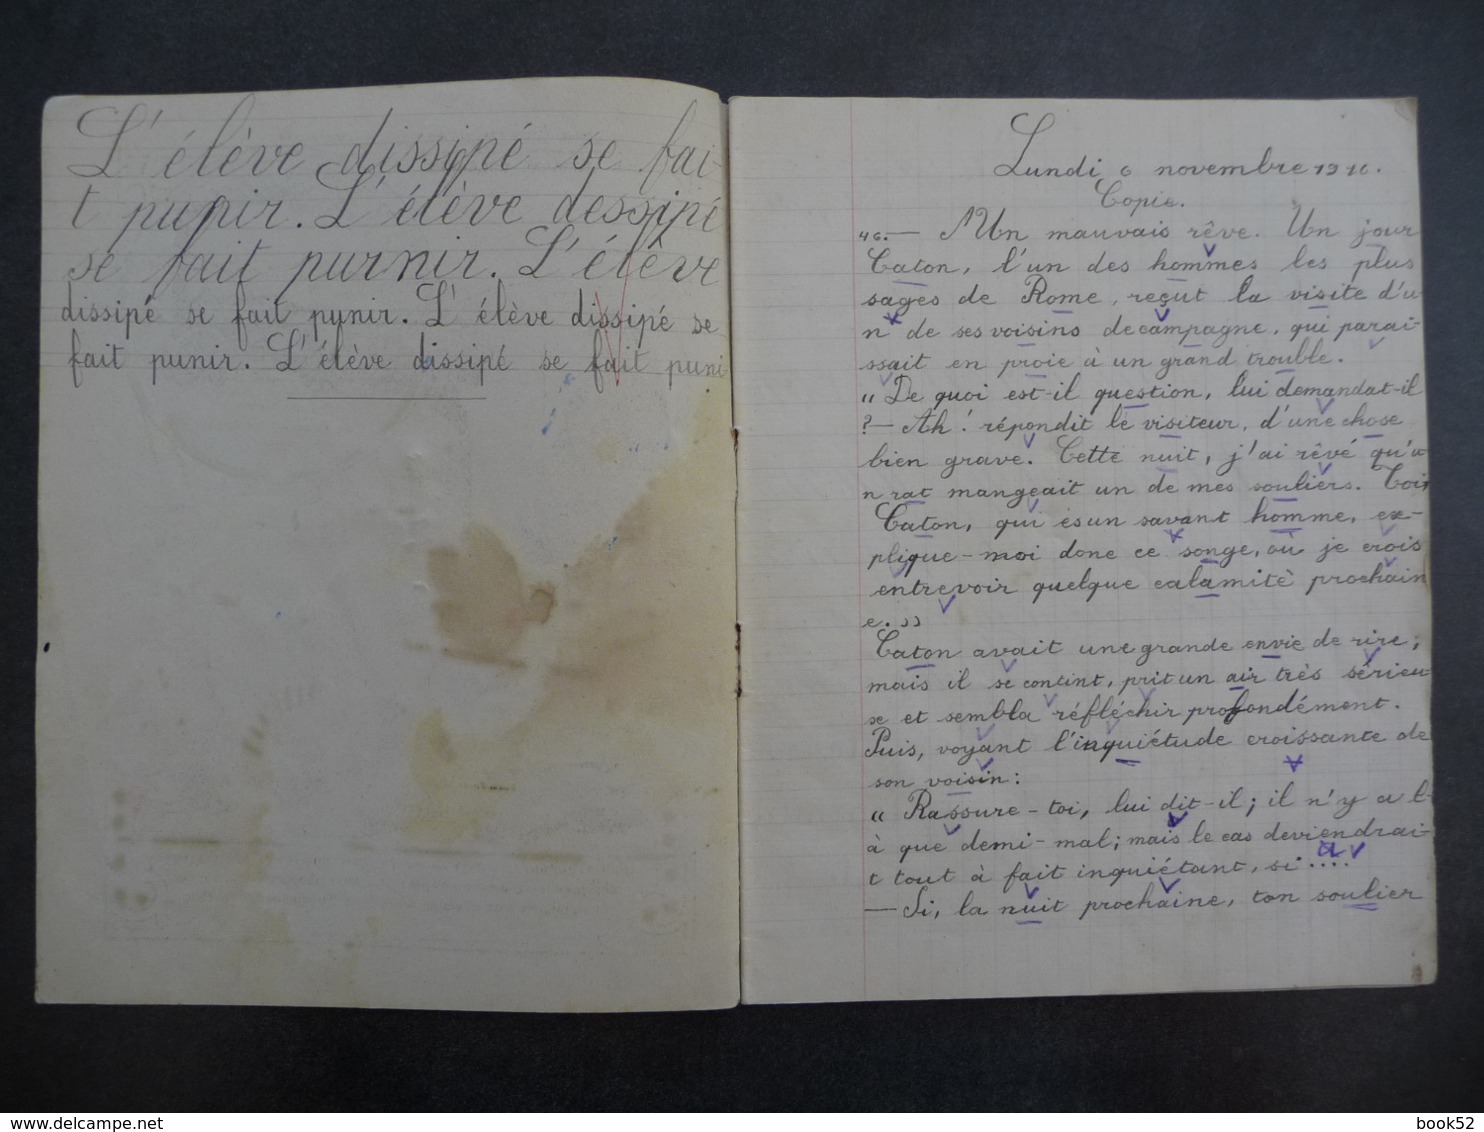 L'élève dissipé se fai-
t punir. L'élève dessipé
se fait purnir. L'élève
dissipé se fait punir. L'élève dissipé se
fait punir. L'élève dissipé se fait puni
Lundi 6 novembre 1916.
Copie.
46.— Un mauvais rêve. Un jour
Caton, l'un des hommes les plus
sages de Rome, reçut la visite d'u
n de ses voisins de campagne, qui parai-
ssait en proie à un grand trouble.
"De quoi est-il question, lui demandat-il
?— Ah! répondit le visiteur, d'une chose
bien grave. Cette nuit, j'ai rêvé qu'u
n rat mangeait un de mes souliers. Toi,
Caton, qui es un savant homme, ex-
plique-moi donc ce songe, où je crois
entrevoir quelque calamitè prochain
e."
Caton avait une grande envie de rire;
mais il se contint, prit un air très sérieu-
x et sembla réfléchir profondément.
Puis, voyant l'inquiétude croissante de
son voisin:
"Rassure-toi, lui dit-il; il n'y a l-
à que demi-mal; mais le cas deviendrai-
t tout à fait inquiétant, si ....
— Si, la nuit prochaine, ton soulier
delcampe.net
book52